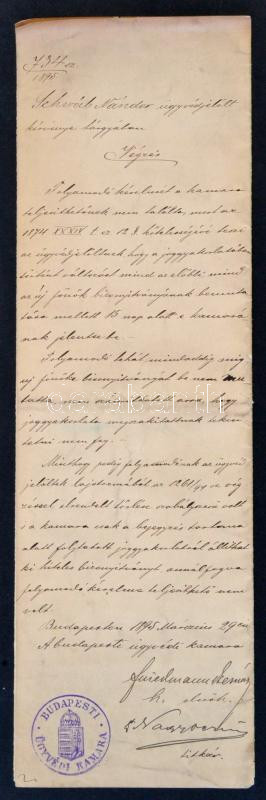 734 sz.
1895
Schváb Nándor ügyvédjelölt
kérvénye tárgyában
Végzés
Folyamodó kérelmét a kamara
teljesíthetőnek nem találta, mert az
1874 XXXIV. t. cz 12. § kötelességévé teszi
az ügyvédjelöltnek hogy a joggyakorlatában
történt változást mind az előbbi mind
az új főnök bizonyítványának bemuta
tása mellett 15 nap alatt a kamará
nak jelentse be. –
Folyamodó tehát mindaddig míg
új főnöke bizonyítványát be nem mu
tatta nem számíthatott arra, hogy
joggyakorlata megszakítottnak tekin
tetni nem fog. –
Minthogy pedig folyamodónak az ügyvéd
jelöltek lajstromából az 1261/94 sz vég
zéssel elrendelt törlése szabályszerű volt
s a kamara csak a bejegyzés tartama
alatt folytatott joggyakorlatról állíthat
ki hiteles bizonyítványt, annálfogva
folyamodó kérelme teljesíthető nem
volt.
Budapesten 1895 Március 29én
A budapesti ügyvédi kamara
Friedmann
h. elnök.
Dr Nagy
titkár.
BUDAPESTI
ÜGYVÉDI KAMARA